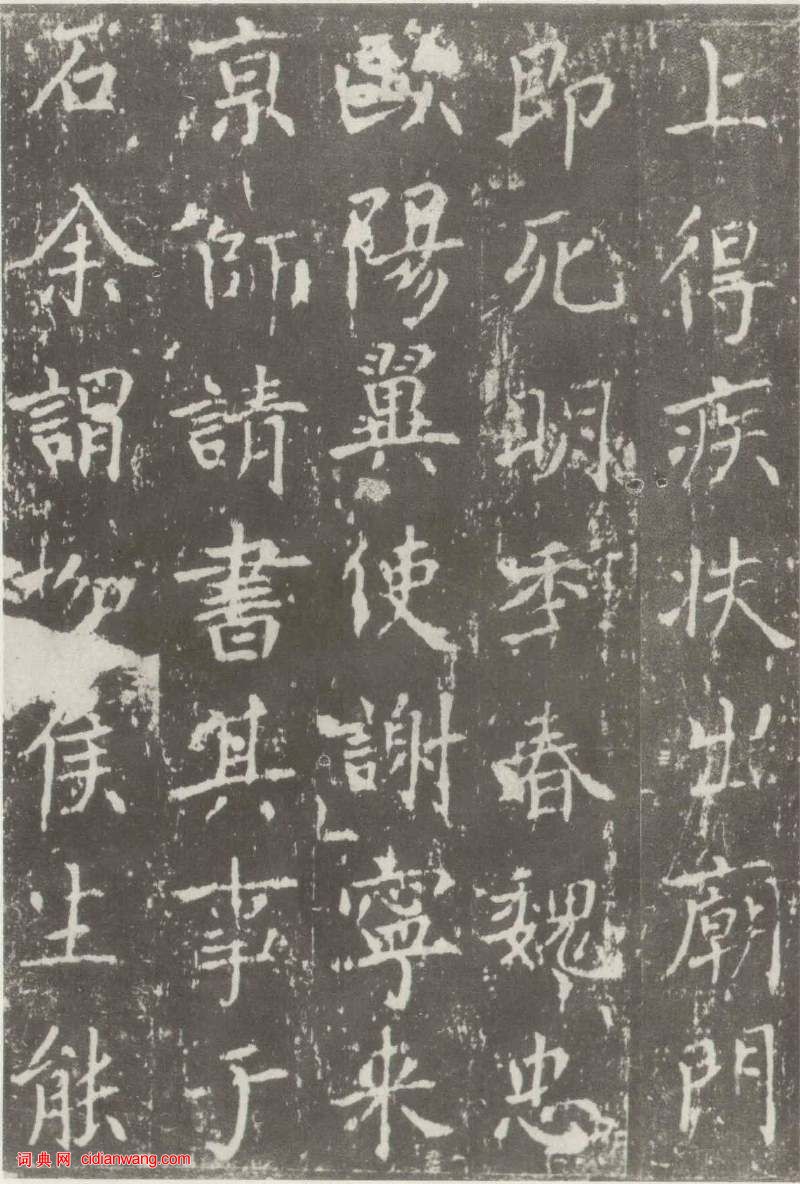 上得疾扶出廟門
即死明季春魏忠
歐陽翼使謝寧來
京師請書其事于
石余謂柳侯生能
词典网 cidianwang.com